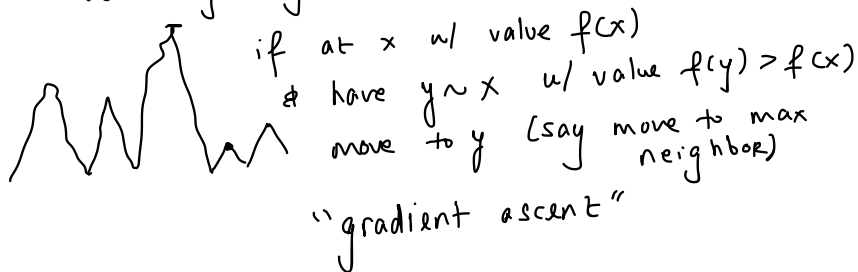 if at x w/ value f(x)
& have y ~ x w/ value f(y) > f(x)
move to y (say move to max
neighbor)
"gradient ascent"